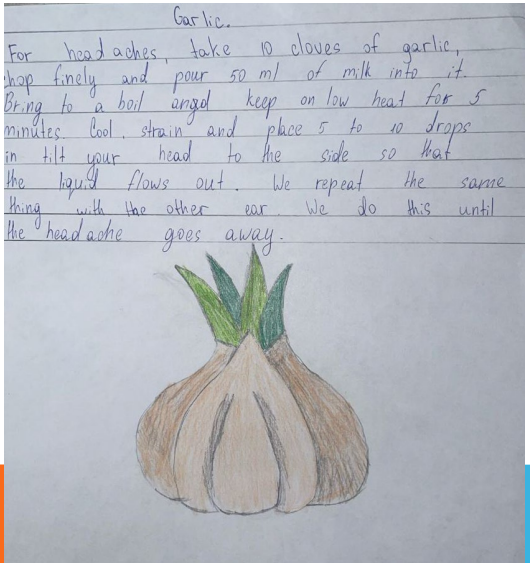 Garlic.
For head aches, take 10 cloves of garlic,
hop finely and pour 50 ml of milk into it.
Bring to a boil angd keep on low heat for 5
minutes Cool. strain and place 5 to 10 drops
in tilt your head to the side so that
the liquid flows out. We repeat the same
thing with the other ear. We do this until
the head ache goes away.